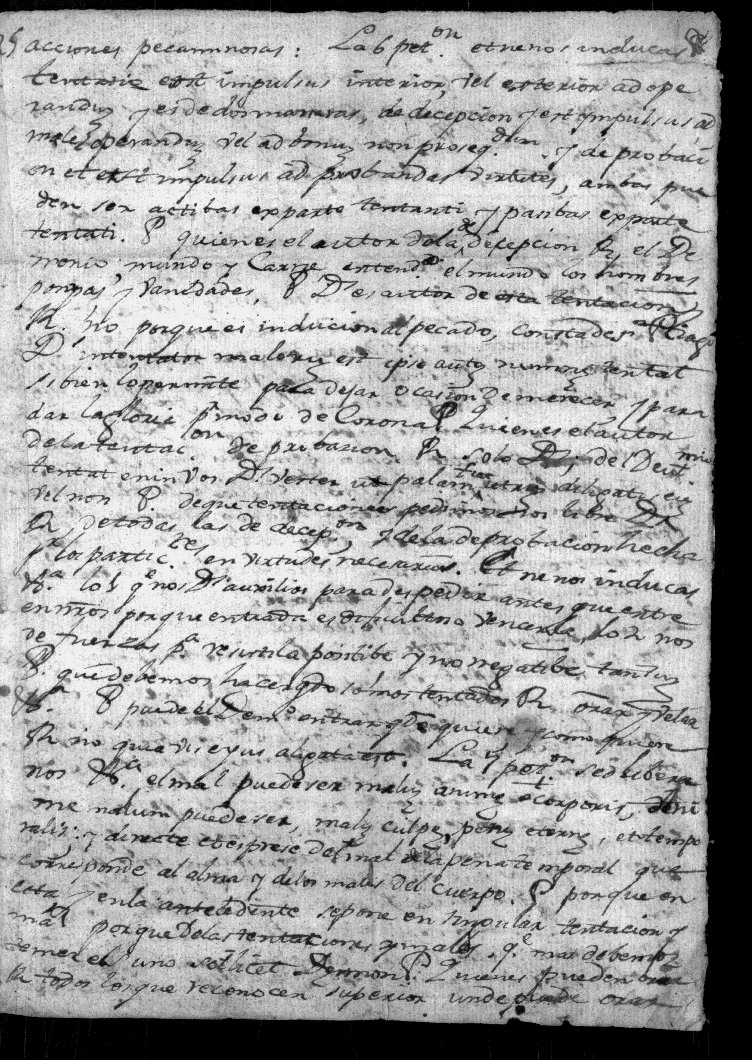 acciones pecaminosas: La 6 pet.on et ne nos inducas
tentatio est impulsus interior, vel exterior ad ope
randũ y es de dos maneras, de decepcion y est impulsus ad
malũ operandũ vel ad bonũ non proseq.dum. y de probaci
on et est impulsus ad probandas virtutes, ambas pue
den ser actibas ex parte tentanti y pasibas ex parte
tentati. P. quien es el autor de la decepcion R. el De
monio mundo y Carne, entend.o el mundo los hombres
pompas, y vanidades, P. D.s es autor de esta tentacion,
R. no porque es inducion al pecado,
D.s intentator malorũ est ipse autẽ neminẽ tentat
si bien lo permite para dejar ocasion de merecer y para
dar la gloria p.r modũ de Corona P. Quien es el autor
de la tentac.on de probacion. R. solo D.s,
tentat enim vos D.s vester ut palam
vel non P. de que tentaciones pedimos nos libre D.s
R. de todas las de decep.on y de la de probacion hecha
los partic.res en virtudes necesarias. Et ne nos inducas
lo 1 q.e nos D.s auxilios para despedir antes que entre
en nros porque entrada es dificultoso vencerla, lo 2 nos
de fuerzas p.a resistila positibe y no negatibe tantũ
P. que debemos hacer q.do somos tentados R. orar
P. puede el Dem.o entrar q.do quiere y como quiere
R. no quia vis ejus aligata est. La 7 pet.on sed libera
nos el mal puede ser malũ animẽ et corporis,
me malum puede ser, malũ culpẽ, penẽ eternẽ, et tempo
ralis: y directe et esprese del mal de la pena temporal que
corresponde al alma y de los males del cuerpo. P. porque en
esta y en la antecedente se pone en singular tentacion y
mal porque de las tentaciones y males q.e mas debemos
temer es uno scilicet Demon P. Quienes pueden orar
R. todos los que reconocen superior unde puede orar